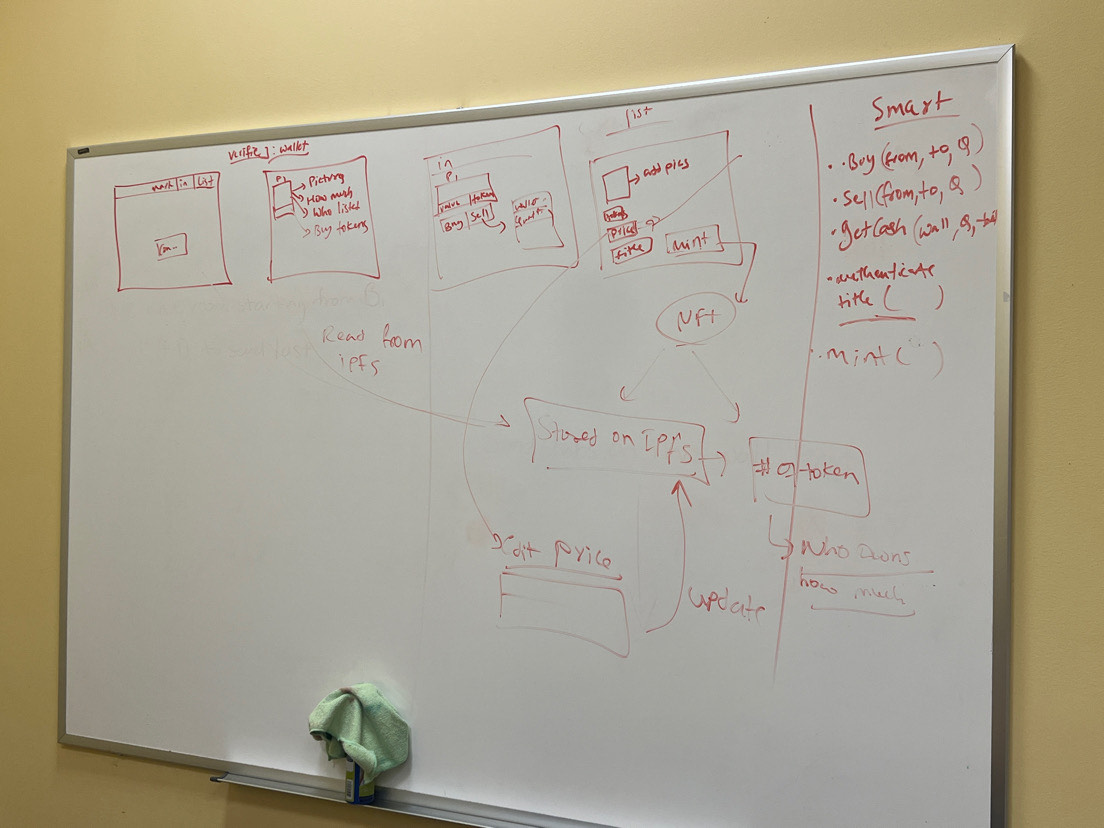 verified : wallet
in
List
P1
Picture
How much
Who listed
Buy tokens
in
P1
value
tokens
Buy
Sell
List
add pics
price
title
mint
NFT
Read from
IPFS
Stored on IPFS
# of token
Who owns
how much
Edit price
update
Smart
• Buy (from, to, Q)
• Sell (from, to, Q)
• getCash (wall, Q,
• authenticate
title ( )
• mint ( )